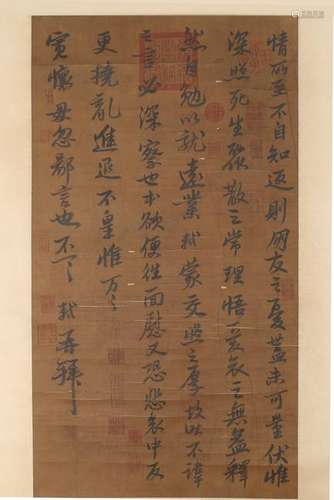 情所至不自知返則朋友之憂蓋未可量伏惟
深照死生聚散之常理悟憂哀之無益釋
然自勉以就遠業軾蒙交照之厚故吐不諱
之言必深察也本欲便往面慰又恐悲哀中反
更撓亂進退不皇惟万万
寬懷毋忽鄙言也不一一 軾再拜